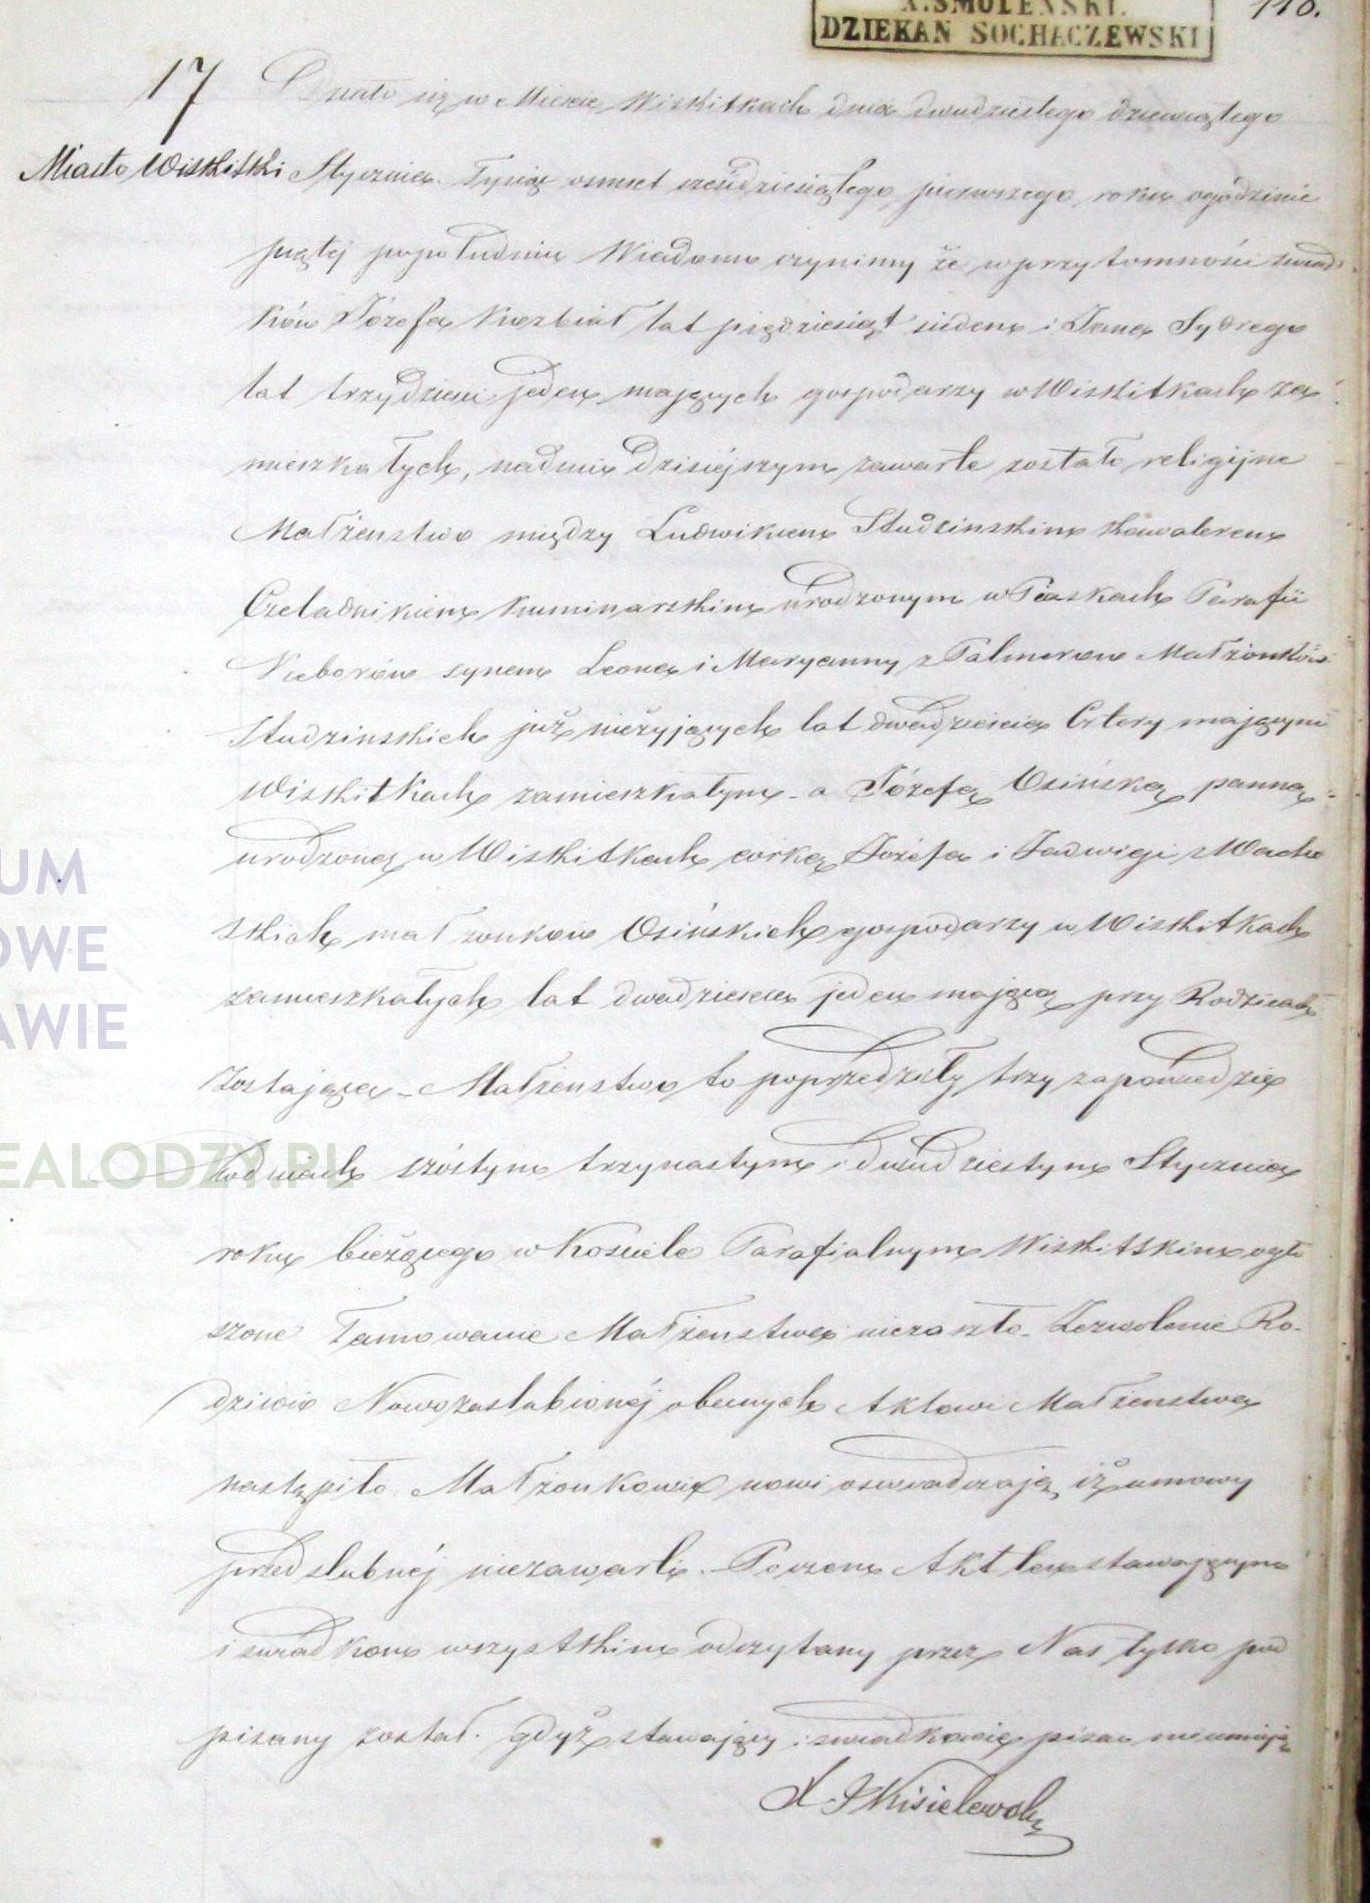 X. SMOLEŃSKI.
DZIEKAN SOCHACZEWSKI
118.
17
Działo się w Mieście Wiskitkach dnia dwudziestego dziewiątego
Miasto Wiskitki
Stycznia Tysiąc osmset sześdziesiątego pierwszego roku ogódzinie
piątej popołudniu Wiadomo czynimy że wprzytomności świad
ków Józefa lat pięździesiąt siedem i Jana
lat trzydzieści jeden mających gospodarzy w Wiskitkach za
mieszkałych, nadniu dzisiéjszym zawarte zostało religijne
Małżenstwo między Ludwikiem Studzinskim kawalerem
Czeladnikiem kuminarskim urodzonym w Piaskach Parafii
Nieborów synem Leona i Maryanny z Palmerow Małżonków
Studzinskich już nieżyjących lat dwadzieścia Cztery mającym
Wiskitkach zamieszkałym - a Józefą Osińską panną
urodzoną w Wiskitkach corką Józefa i Jadwigi z Wach
skich małżonkow Osińskich gospodarzy w Wiskitkach
zamieszkałych lat dwadzieścia jeden mającą przy Rodzicach
zostającą - Małżenstwo to poprzedziły trzy zapowiedzie
wdniach szóstym trzynastym i dwudziestym Stycznia
roku bieżącego w Kościele Parafialnym Wiskitskim ogło
szone Tamowanie Małżenstwa niezaszło - Zezwolenie Ro-
dziców Nowozaslubionéj obecnych Aktowi Małżenstwa
nastąpiło. Małżonkowie nowi oswiadczają iż umowy
przedslubnéj niezawarli. - Poczem Akt ten stawającym
i swiadkom wszystkim odczytany przez Nas tylko pod
pisany został. gdyż stawający i swiadkowie pisac nieumieją
X J Kisielewski
UM
OWE
AWIE
EALODZY.PL